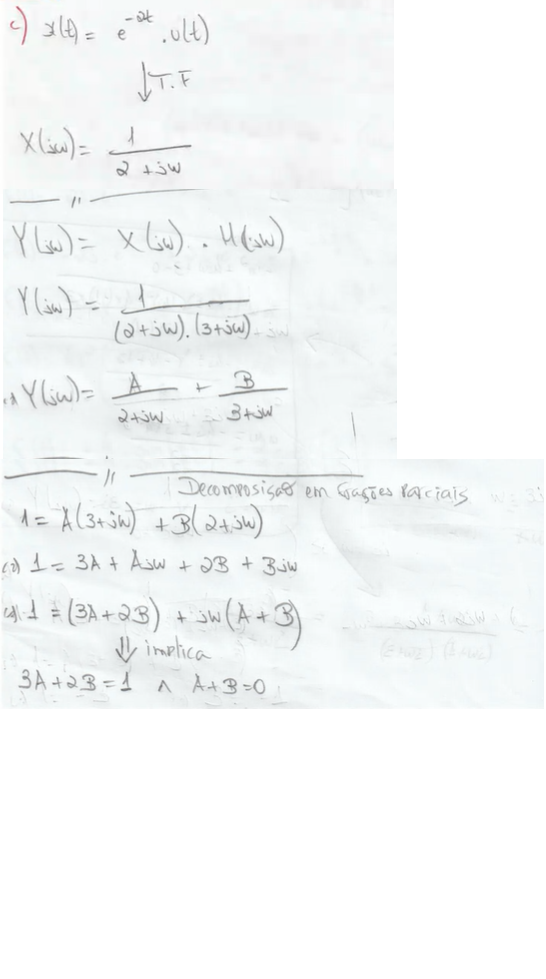 c) x(t) = e^{-2t} . u(t)
↓ T.F
X(jw) = 1 / (2 + jw)
Y(jw) = X(jw) . H(jw)
Y(jw) = 1 / ((2+jw).(3+jw))
(=) Y(jw) = A / (2+jw) + B / (3+jw)
Decomposição em frações Parciais
1 = A(3+jw) + B(2+jw)
(=) 1 = 3A + Ajw + 2B + Bjw
(=) 1 = (3A+2B) + jw(A+B)
⇓ implica
3A+2B=1 ∧ A+B=0